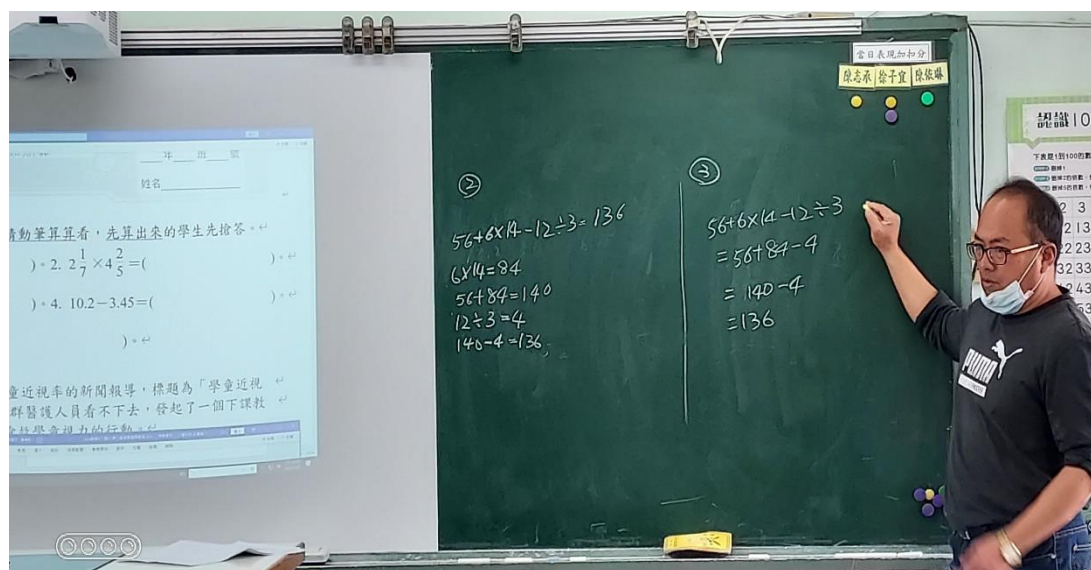 年 班 號
姓名
請動筆算算看，先算出來的學生先搶答。
)。2. 2 1/7 ×4 2/5 =( )。
)。4. 10.2－3.45＝( )。
)。
童近視率的新聞報導，標題為「學童近視
群醫護人員看不下去，發起了一個下課教
②
56+6×14-12÷3=136
6×14=84
56+84=140
12÷3=4
140-4=136
③
56+6×14-12÷3
=56+84-4
=140-4
=136
當日表現加扣分
陳志承 徐子宜 陳依琳
認識10
下表是1到100的數
2 3
2 13
22 23
32 33
PUMA